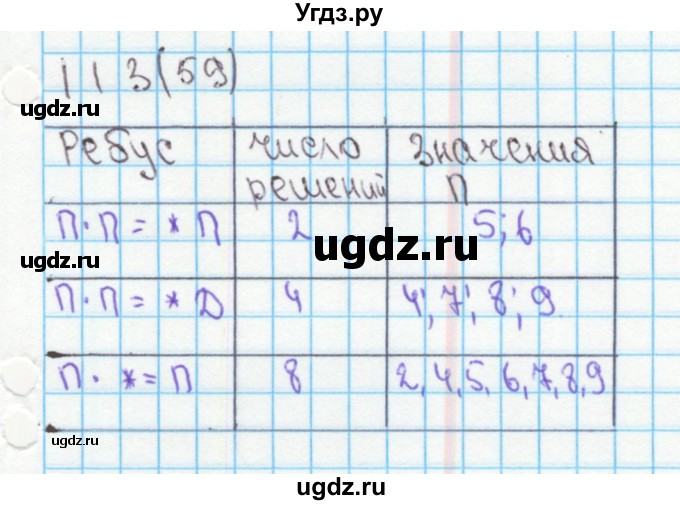 Угдз.ру
113(59)
ugdz.ru
Ребус число решений Значения П
П·П = *П 2 5; 6
ugdz.ru
ugdz.ru
П·П = *Д 4 4; 7; 8; 9
П·*=П 8 2, 4, 5, 6, 7, 8, 9
ugdz.ru
ugdz.ru